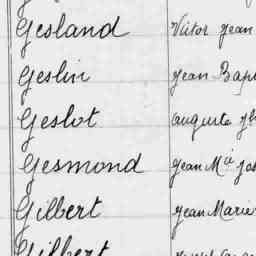 Gesland Victor Jean
Geslin Jean Bap
Geslot Auguste
Gesmond Jean Mie Jos
Gilbert Jean Marie
Gilbert